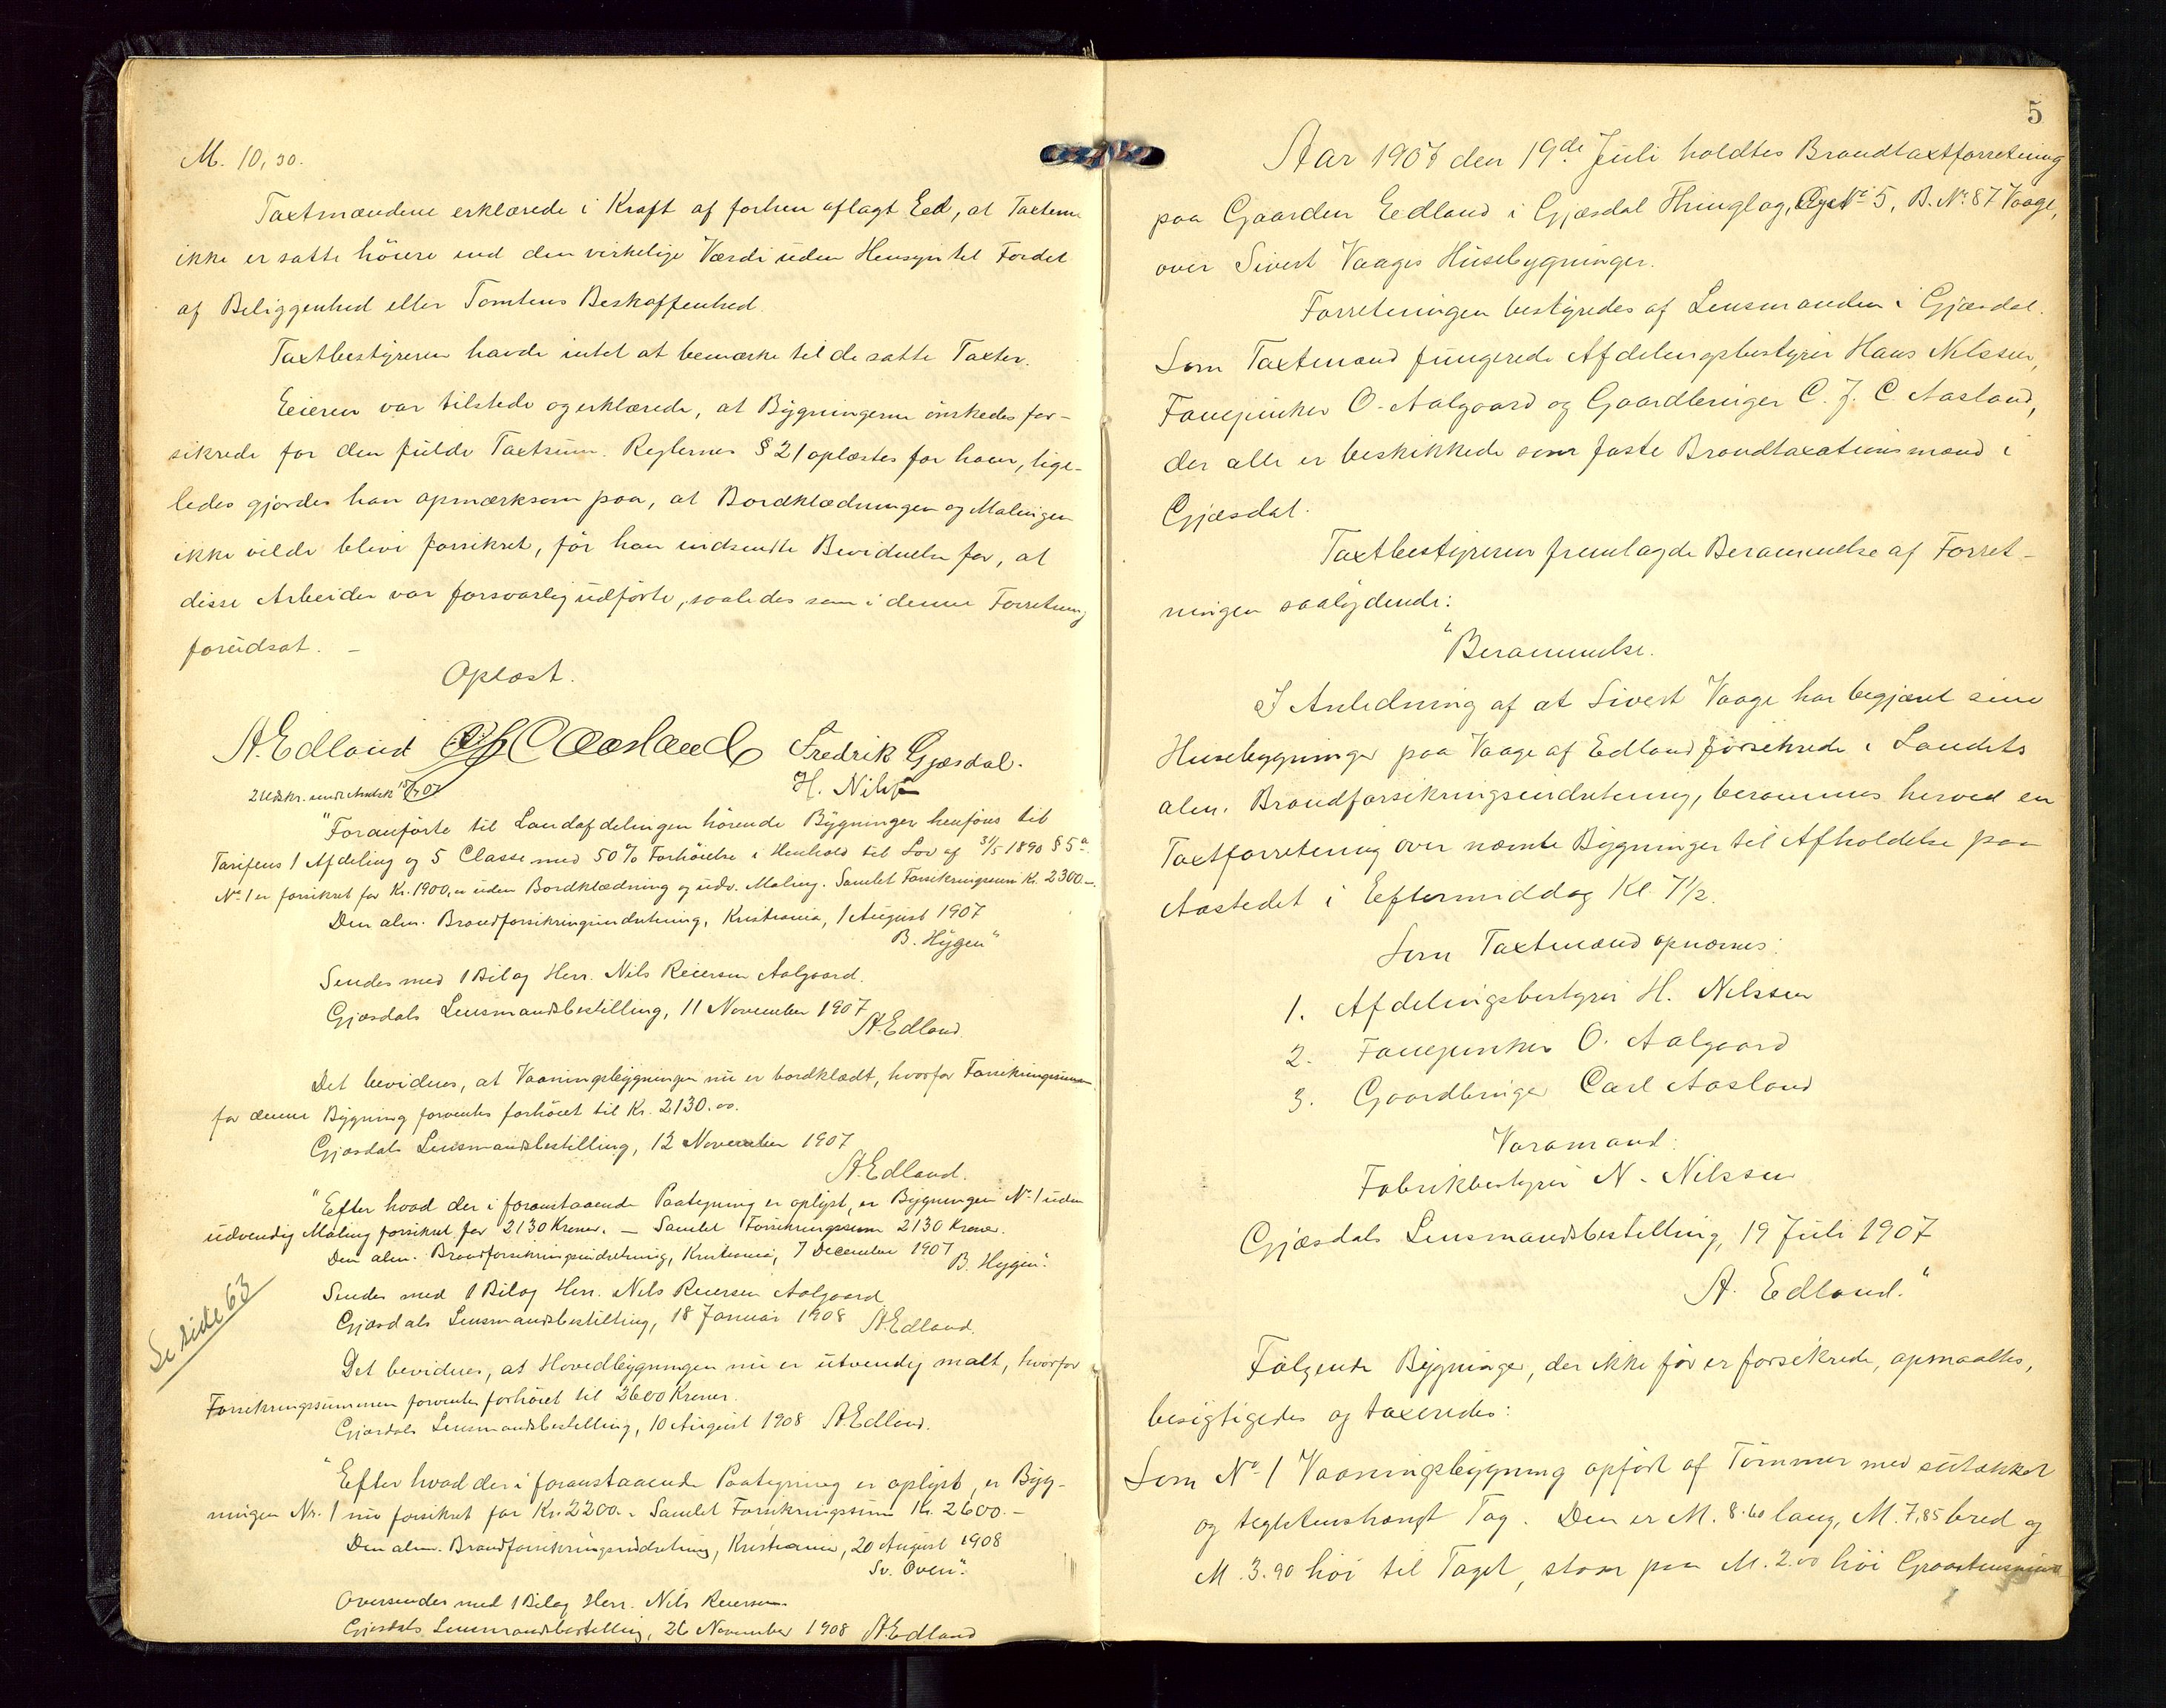 M. 10,30.
Taxtmændene erklærede i Kraft af forhen aflagt Eed, at Taxterne
ikke er satte höiere end den virkelige Værdi uden Hensyn til Fordel
af Beliggenhed eller Tomtens Beskaffenhed.
Taxtbestyreren havde intet at bemærke til de satte Taxter.
Eieren var tilstede og erklærede, at Bygningerne önskedes for-
sikrede for den fulde Taxtsum. Reglernes § 21 oplæstes for ham, lige-
ledes gjordes han opmærksom paa, at Bordklædningen og Malingen
ikke vilde blive forsikret, för han indsendte Bevidnelse for, at
disse Arbeider var forsvarlig udförte, saaledes som i denne Forretning
forudsat. –
Oplæst.
A. Edland C J C Aasland Fredrik Gjesdal.
H. Nilssen
2 Udskr. sendt Amtsk 13/7 07
"Foranförte til Landafdelingen hörende Bygninger henföres til
Tarifens 1 Afdeling og 5 Classe med 50% Forhöielse i Henhold til Lov af 31/5 1890 § 5 a.
No 1 er forsikret for Kr. 1900, uden Bordklædning og udv. Maling. Samlet Forsikringssum Kr. 2300.–
Den alm. Brandforsikringsindretning, Kristiania, 1 August 1907
B. Hygen"
Sendes med 1 Bilag Herr. Nils Reiersen Aalgaard.
Gjæsdals Lensmandsbestilling, 11 November 1907
A. Edland.
Det bevidnes, at Vaaningsbygningen nu er bordklædt, hvorfor Forsikringssummen
for denne Bygning forventes forhöiet til Kr. 2130.00.
Gjæsdals Lensmandsbestilling, 12 November 1907
A. Edland.
"Efter hvad der i foranstaaende Paategning er oplyst, er Bygningen No 1 uden
udvendig Maling forsikret for 2130 Kroner. – Samlet Forsikringssum 2130 Kroner.
Den alm. Brandforsikringsindretning, Kristiania, 7 December 1907
B. Hygen."
Sendes med 1 Bilag Herr. Nils Reiersen Aalgaard
Gjæsdals Lensmandsbestilling, 18 Januar 1908 A. Edland.
Se side 63
Det bevidnes, at Hovedbygningen nu er utvendig malt, hvorfor
Forsikringssummen forventes forhöiet til 2600 Kroner.
Gjæsdals Lensmandsbestilling, 10 August 1908 A. Edland.
"Efter hvad der i foranstaaende Paategning er oplyst, er Byg-
ningen Nr. 1 nu forsikret for Kr. 2200.– Samlet Forsikringssum Kr. 2600.–
Den alm. Brandforsikringsindretning, Kristiania, 20 August 1908
Sv. Oven."
Oversendes med 1 Bilag Herr. Nils Reiersen
Gjesdals Lensmandsbestilling, 26 November 1908 A. Edland
5
Aar 1907 den 19de Juli holdtes Brandtaxtforretning
paa Gaarden Edland i Gjæsdal Thinglag, No 5, B. No 87 Vaage,
over Sivert Vaages Husebygninger.
Forretningen bestyredes af Lensmanden i Gjæsdal.
Som Taxtmænd fungerede Afdelingsbestyrer Hans Nilssen,
Fanejunker O. Aalgaard og Gaardbruger C. J. C. Aasland,
der alle er beskikkede som faste Brandtaxationsmænd i
Gjæsdal.
Taxtbestyreren fremlagde Berammelse af Forret-
ningen saalydende:
"Berammelse.
I Anledning af at Sivert Vaage har begjæret sine
Husebygninger paa Vaage af Edland forsikrede i Landets
alm. Brandforsikringsindretning, berammes herved en
Taxtforretning over nævnte Bygninger til Afholdelse paa
Aastedet i Eftermiddag Kl. 7½.
Som Taxtmænd opnævnes:
1. Afdelingsbestyrer H. Nilssen
2. Fanejunker O. Aalgaard
3. Gaardbruger Carl Aasland
Varamand:
Fabrikbestyrer N. Nilssen
Gjæsdals Lensmandsbestilling, 19 Juli 1907
A. Edland."
Fölgende Bygninger, der ikke för er forsikrede, opmaaltes,
besigtigedes og taxeredes:
Som No 1 Vaaningsbygning opfört af Tömmer med sutækket
og teglstenshængt Tag. Den er M. 8.60 lang, M. 7,85 bred og
M. 3.90 höi til Taget, staar paa M. 2.00 höi Graastensmur